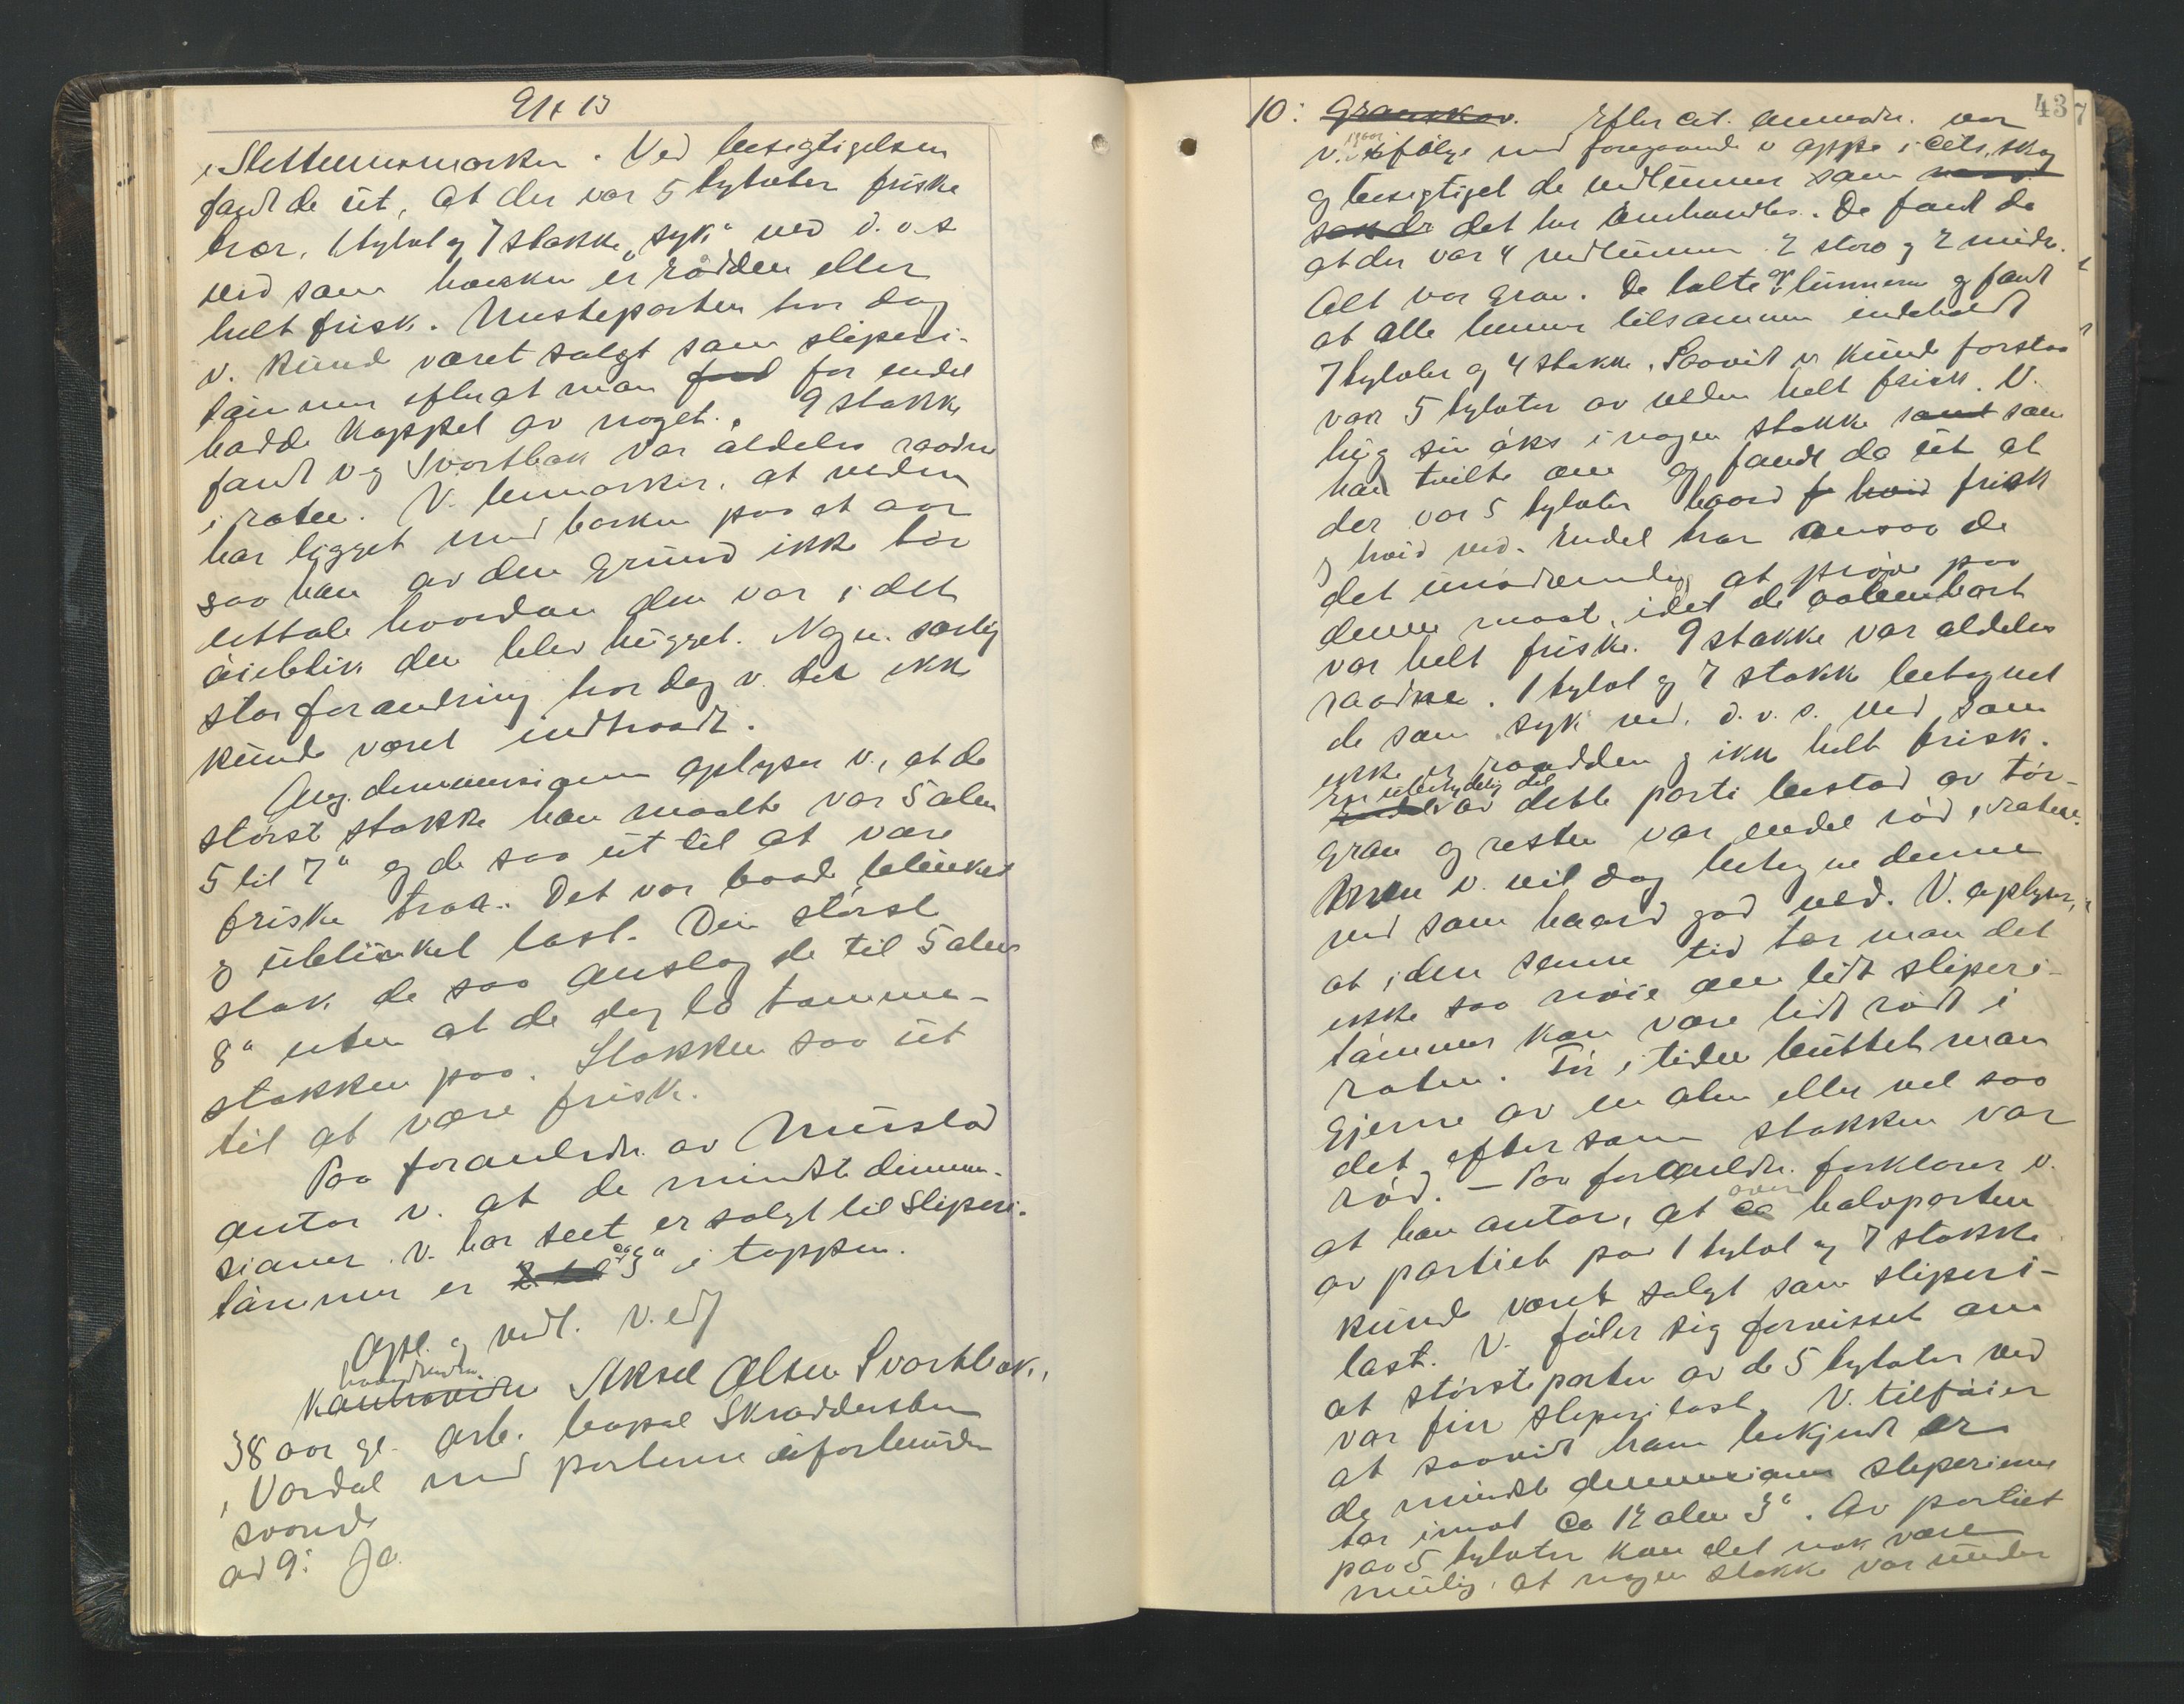 i Slettumsmarken. Ved besigtigelsen
fandt de ut, at der var 5 tylvter friske
trær, 1 tylvt og 7 stokke "syk" ved d.v.s
ved som hverken er rådden eller
helt frisk. Mesteparten tror dog
v. kunde været solgt som sliperi-
tømmer efterat man ford for endel
hadde kappet av noget. 9 stokke
fandt v og Svartbak var aldeles raadne
i roten. V. bemerker, at veden
har ligget med barken paa et aar
saa han av den grund ikke tør
uttale hvordan den var i det
øieblik den blev hugget. Nogen særlig
stor forandring tror dog v. det ikke
kunde været indtraadt.
Ang. dimensionene oplyser v., at de
størst stokke han maalte var 5 alen
5 til 7" og de saa ut til at være
friske traa. Det var baade blinket
og ublinket last. Den størst
stok de saa anslog de til 5 alen
8" uten at de dog la tomme-
stokken paa. Stokken saa ut
til at være frisk.
Paa foranledn. av Mustad
antar v. at de mindste dimen-
sioner v. har seet er solgt til Sliperi-
tømmer er 2 til ca 3" i toppen.
Opl. og vedt. V. edf
Kontravidn Aksel Olsen Svartbak,
38 aar gl. arb. bopæl Skræddersten
i Vardal med parterne uforbunden
svarende
ad 9: Ja.
43
10: Granskov. Efter cit. anmodn. var
v. i følge med foregaaende v oppe i cits. skog
og besigtiget de vedlunner som
det her omhandles. De fandt da
at der var 4 vedlunner 2 store og 2 mindre.
Alt var gran. De talte op lunnerne og fandt
at alle lunner tilsammen indeholdt
7 tylvter og 4 stokke. Saavidt v kunde forstaa
var 5 tylvter av veden helt frisk. V.
hug sin øks i nogen stokke samt som
han tvilte om og fandt da ut at
der var 5 tylvter haard f hvid frisk
og hvid ved. Endel trær ansaa de
det unødvendig at prøve paa
denne maat, idet de aabenbart
var helt friske. 9 stokke var aldeles
raadne. 1 tylvt og 7 stokk betegnet
de som syk ved, d.v.s. ved som
ikke er raadden og ikke helt frisk.
En ubetydelig del av dette parti bestod av tør-
gran og resten var endel rød i roten.
Men v. vil dog betegne denne
ved som haard god ved. V. oplyser,
at i den senere tid tar man det
ikke saa nøie om lidt sliperi-
tømmer kan være lidt rødt i
roten. Før i tiden buttet man
gjerne av en alen eller vel saa
det, eftersom stokken var
rød. - Paa foranledn. forklarer v.
at han antar, at ca over halvparten
av partiet paa 1 tylvt og 7 stokke
kunde været solgt som sliperi-
last. V. føler sig forvisset om
at størsteparten av de 5 tylvter ved
var fin sliperilast. V. tilføier
at saavidt ham bekjendt er
de mindste dimensioner sliperierne
tar imot ca 12 alen 3". Av partiet
paa 5 tylvter kan det nok være
mulig, at nogen stokke var under